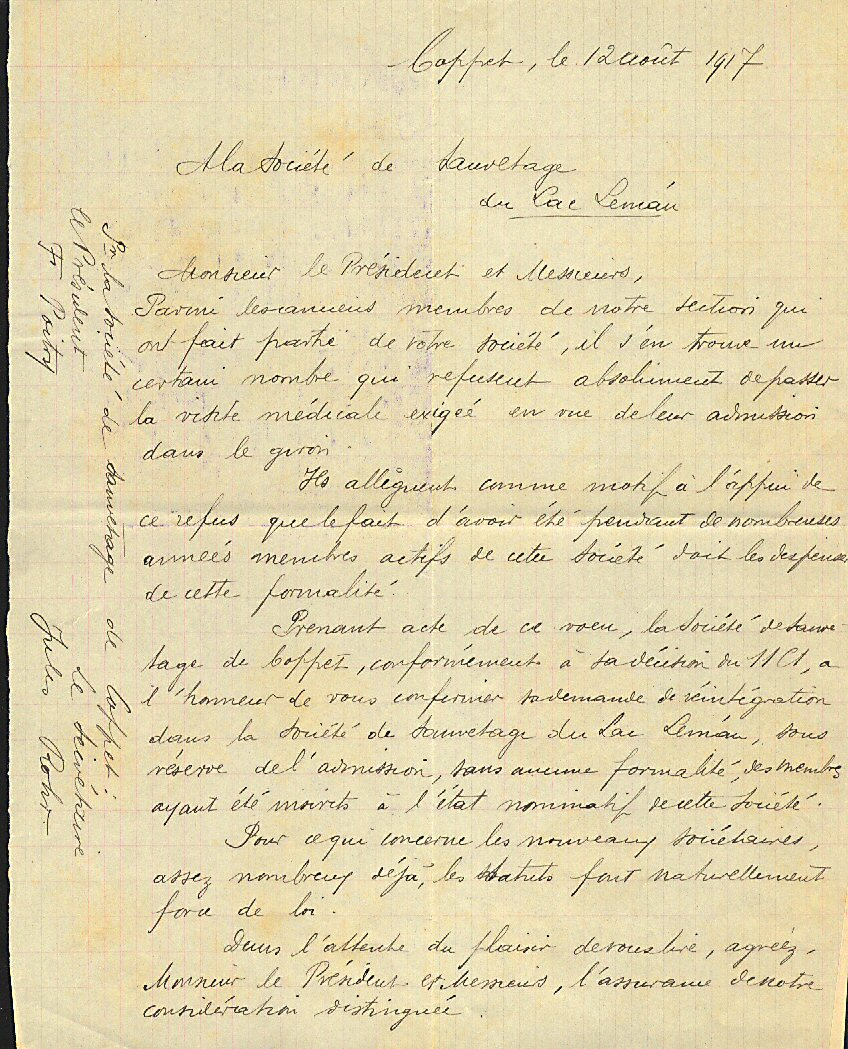 Coppet, le 12 août 1917
A la Société de Sauvetage
du Lac Lemán
Monsieur le Président et Messieurs,
Parmi les anciens membres de notre section qui
ont fait partie de votre société, il s'en trouve un
certain nombre qui refusent absolument de passer
la visite médicale exigeé en vue de leur admission
dans le giron.
Ils allèguent comme motif à l'appui de
ce refus que le fait d'avoir été pendant de nombreuses
anneés membres actifs de cette Société doit les dispenser
de cette formalité.
Prenant acte de ce voeu, la Société de Sauve-
tage de Coppet, conformément à sa décision du 11 Ct, a
l'honneur de vous confirmer sa demande de réintégration
dans la Société de Sauvetage du Lac Lemán, sous
réserve de l'admission, sans aucune formalité, des membres
ayant été inscrits à l'état nominatif de cette Société.
Pour ce qui concerne les nouveaux sociétaires,
assez nombreux déjà, les statuts font naturellement
force de loi.
Dans l'attente du plaisir de vous lire, agréez,
Monsieur le Président et Messieurs, l'assurance de notre
considération distinguée.
Pr la Société de Sauvetage de Coppet:
Le Président
Le Secrétaire
Fs Poitry
Jules Rohr